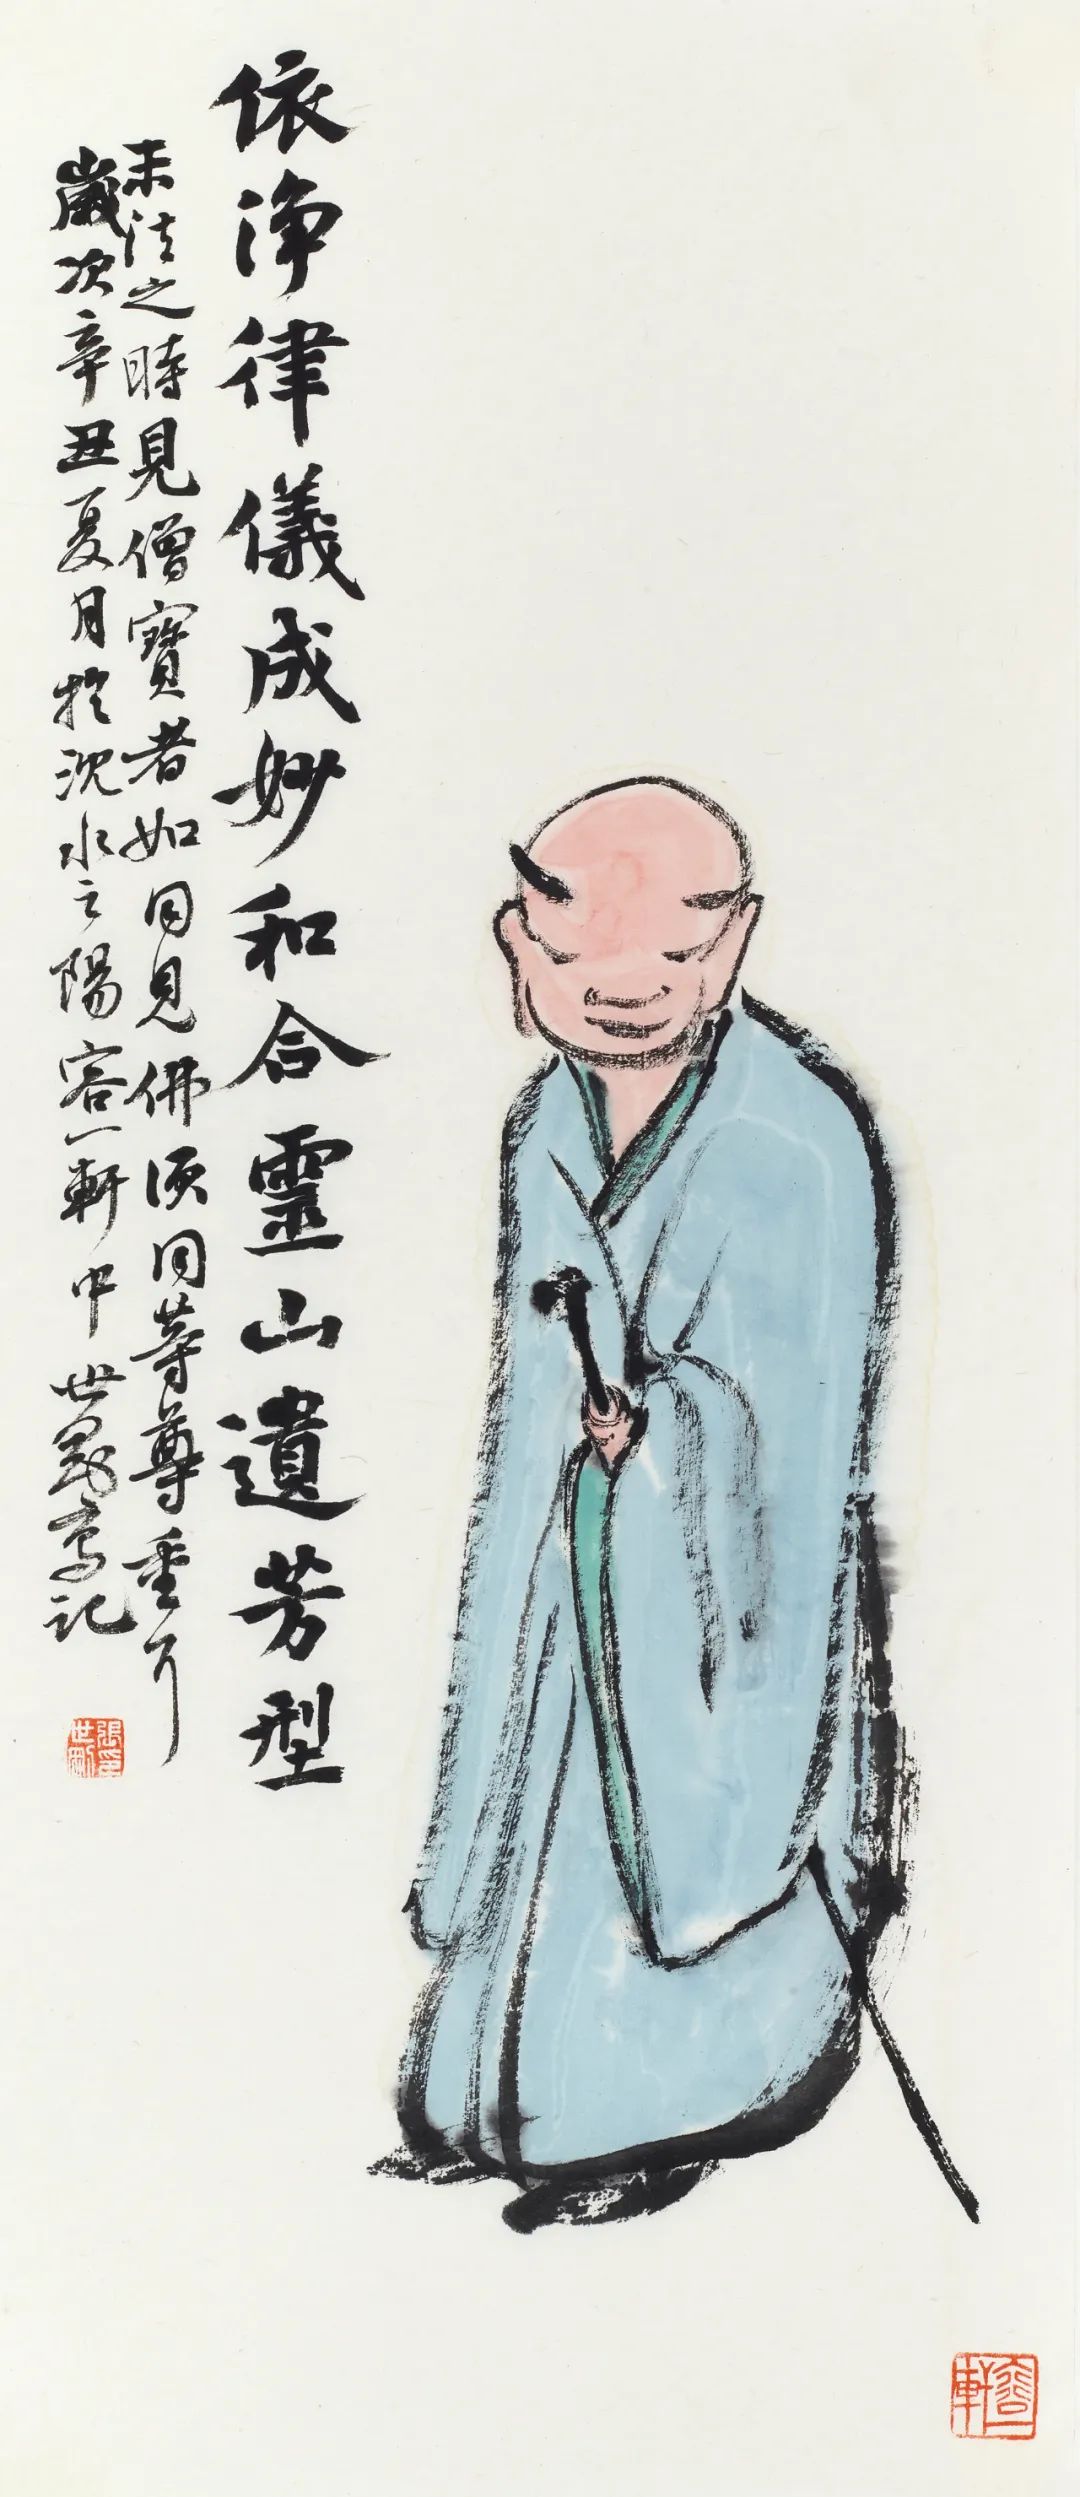 依浄律儀成妙和合靈山遺芳型
末法之時見僧寶者如同見佛須同等尊重可
歲次辛丑夏月於沈水之陽容一軒中世剛寫記
張世剛印
容一軒